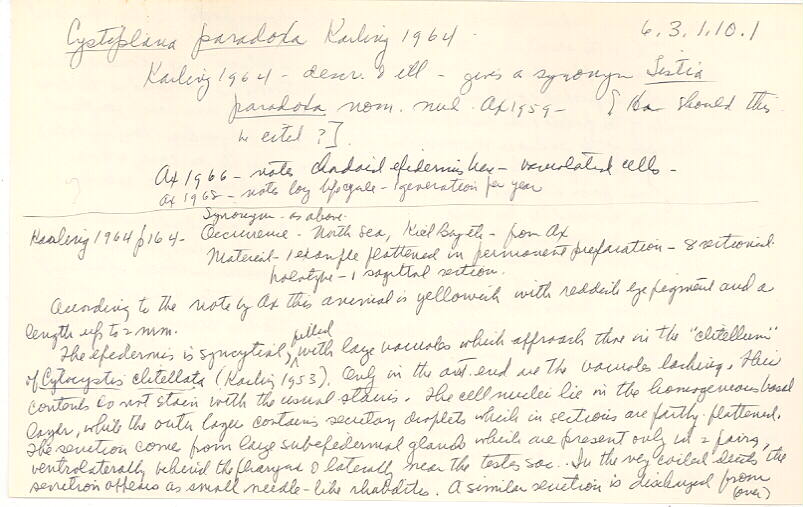 Cystiplana paradoxa Karling 1964 6.3.1.10.1
Karling 1964 - descr. & ill - gives a synonym Tistia
paradoxa nom. nud. Ax 1959 - [ How should this
be cited ? ].
Ax 1966 - notes chordoid epidermis has - vacuolated cells -
Ax 1968 - notes long life cycle - 1 generation per year
Synonym - as above.
Karling 1964 p 164 - Occurrence - North Sea, Kiel Bay etc - from Ax
Material - 1 example flattened in permanent preparation - 8 sectioned.
holotype - 1 sagittal section.
According to the note by Ax this animal is yellowish with reddish eye pigment and a
length up to 2 mm.
The epidermis is syncytial, filled with large vacuoles which approach those in the "clitellum"
of Cytocystis clitellata (Karling 1953). Only in the ant. end are the vacuoles lacking. Their
contents do not stain with the usual stains. The cell nuclei lie in the homogeneous basal
layer, while the outer layer contains secretory droplets which in sections are partly flattened.
The secretion come from large subepidermal glands which are present only in 2 pairs,
ventrolaterally behind the pharynx & laterally near the testes sac. In the very coiled ducts the
secretion appears as small needle-like rhabdites. A similar secretion is discharged from
(over)